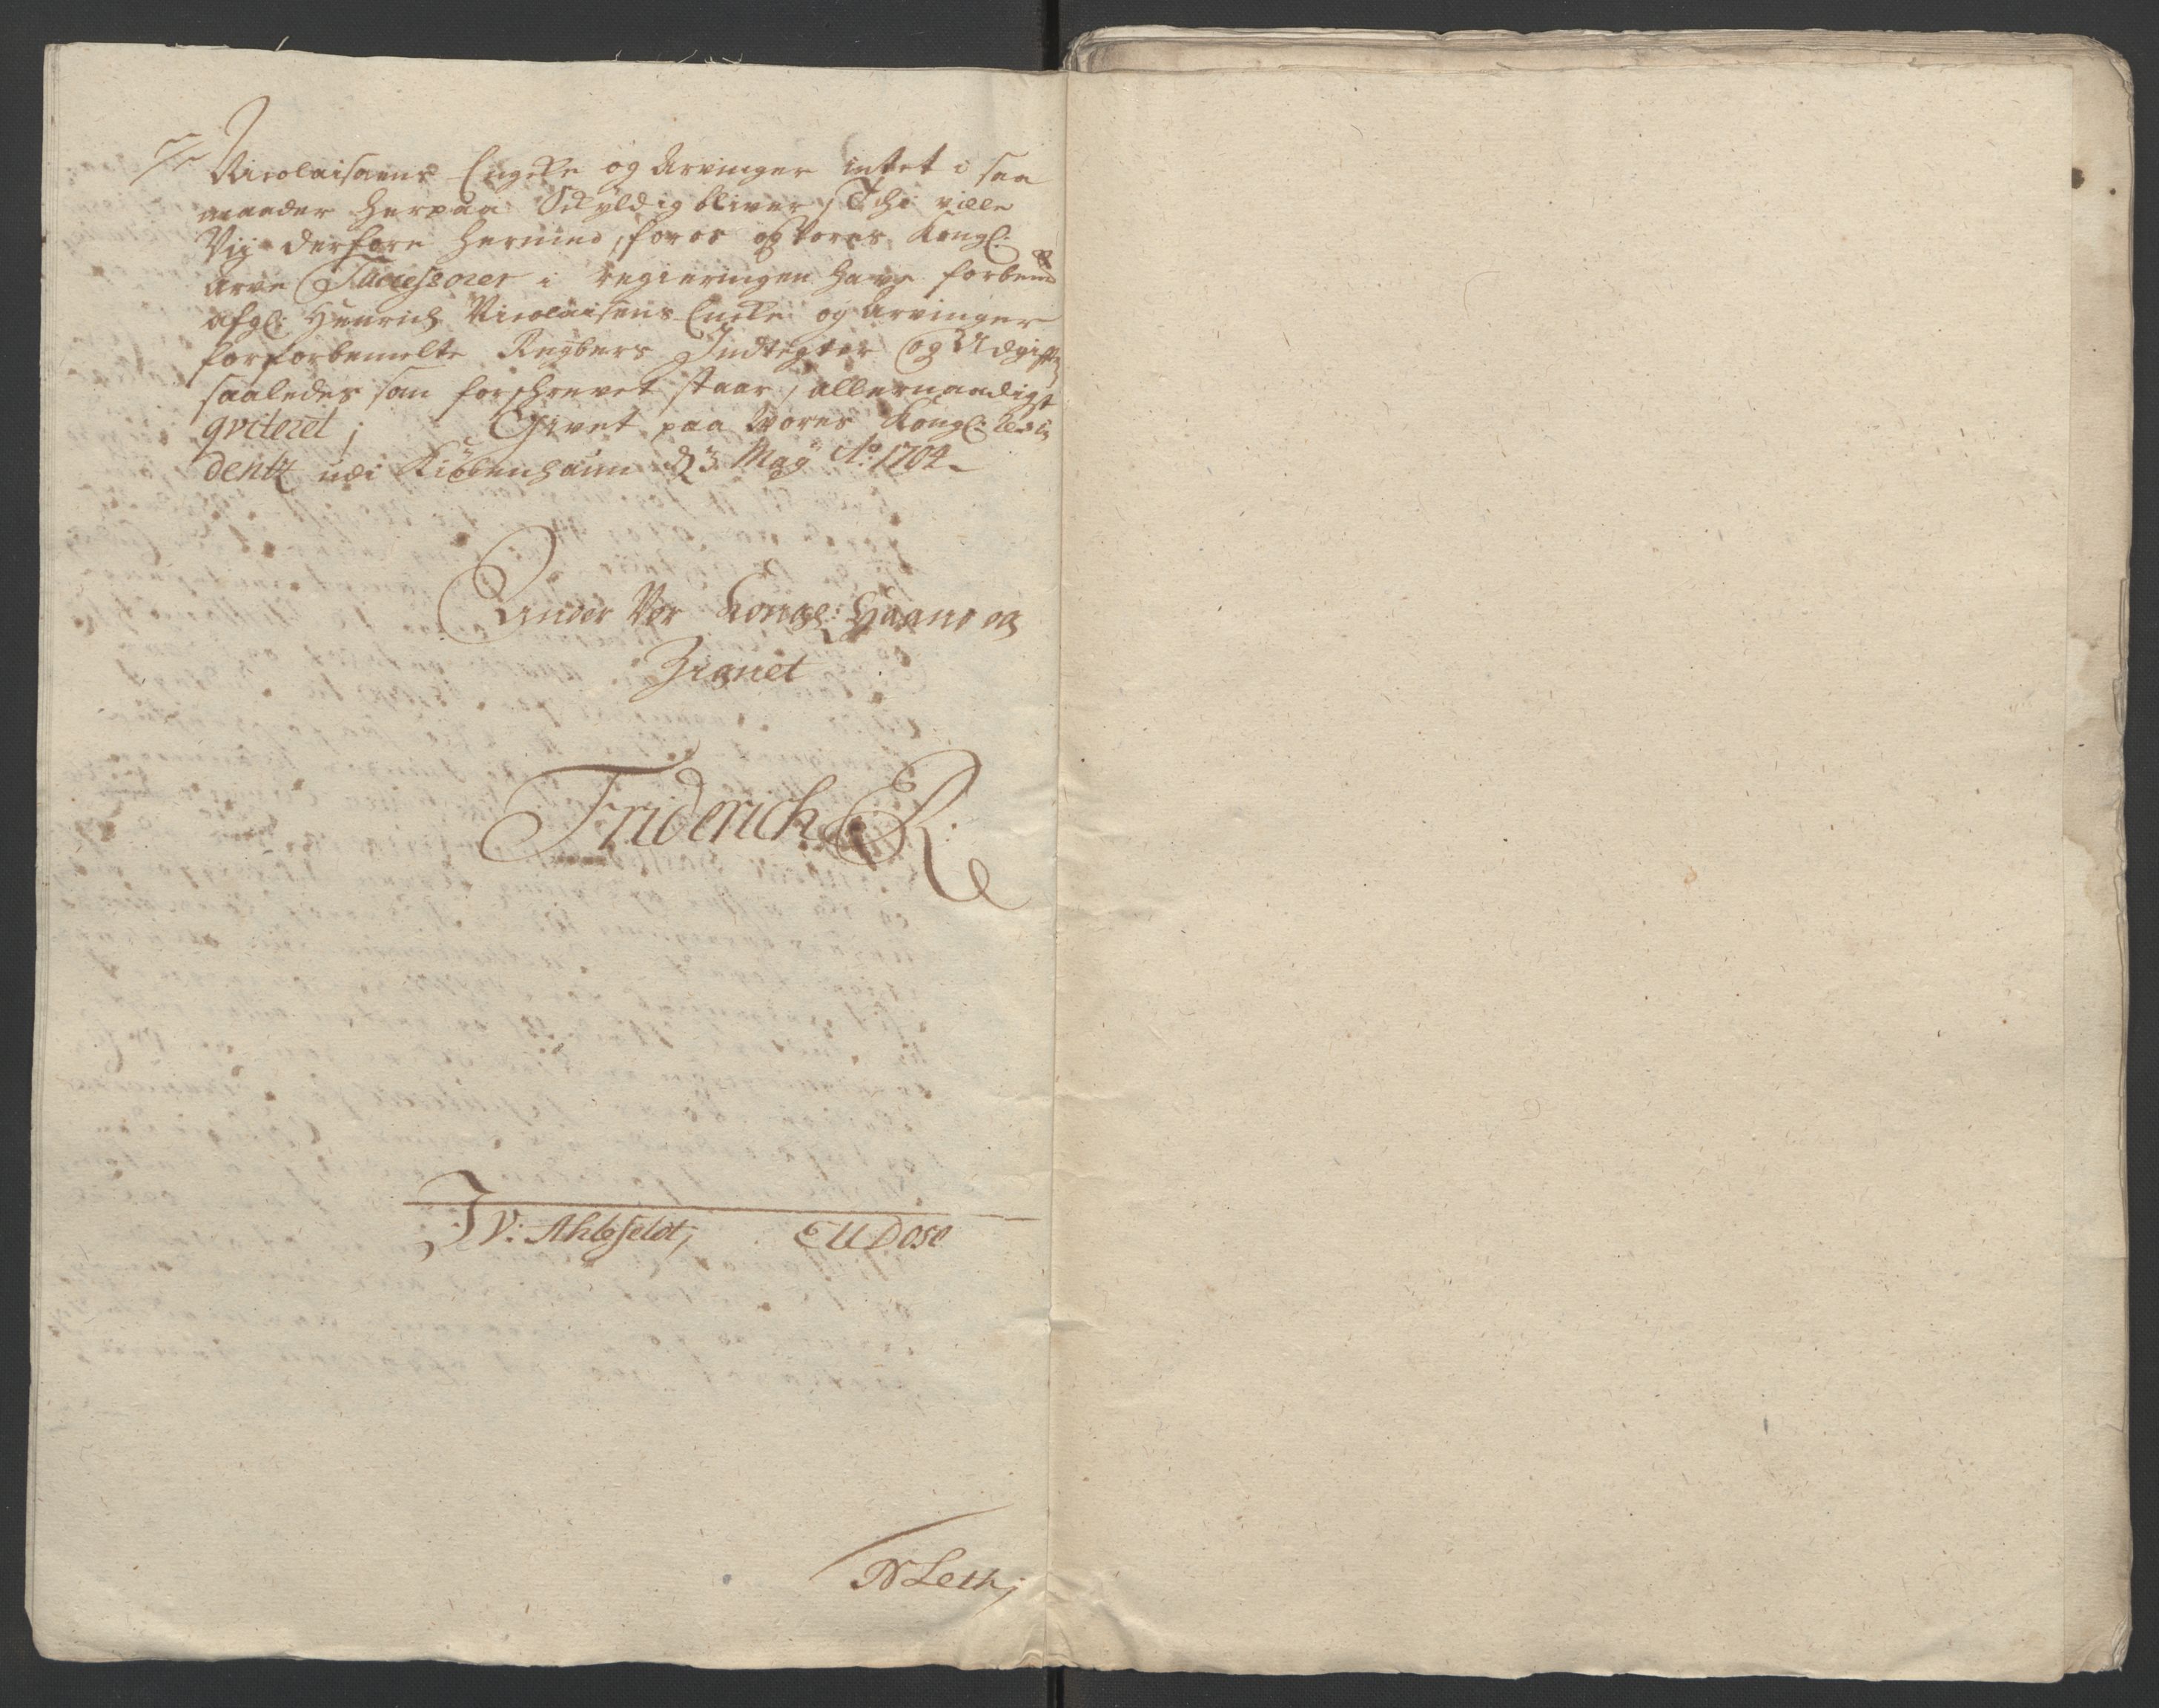 Nicolaisøns Enche og Arvinger intet i saa
maader herpaa Schyldig bliver, Thi ville
Vij derfore hermed, for os og Vores Kongl:
Arve Successorer i regieringen have forbemte
afgl: Henrich Nicolaisens Encke og Arvinger
for forbemelte Regbers Indtegter og Udgifter
saaledes som forschrevet staar, allernaadigst
qviteret; Givet paa Vores Kongl: Resi
dentz udi Kiøbenhaun d 3 Maÿ Ao: 1704
Under Vor Kongl: Haand og
Zignet
Friderich R:
J V: Ahlefeldt; CU Dose
N Leth;